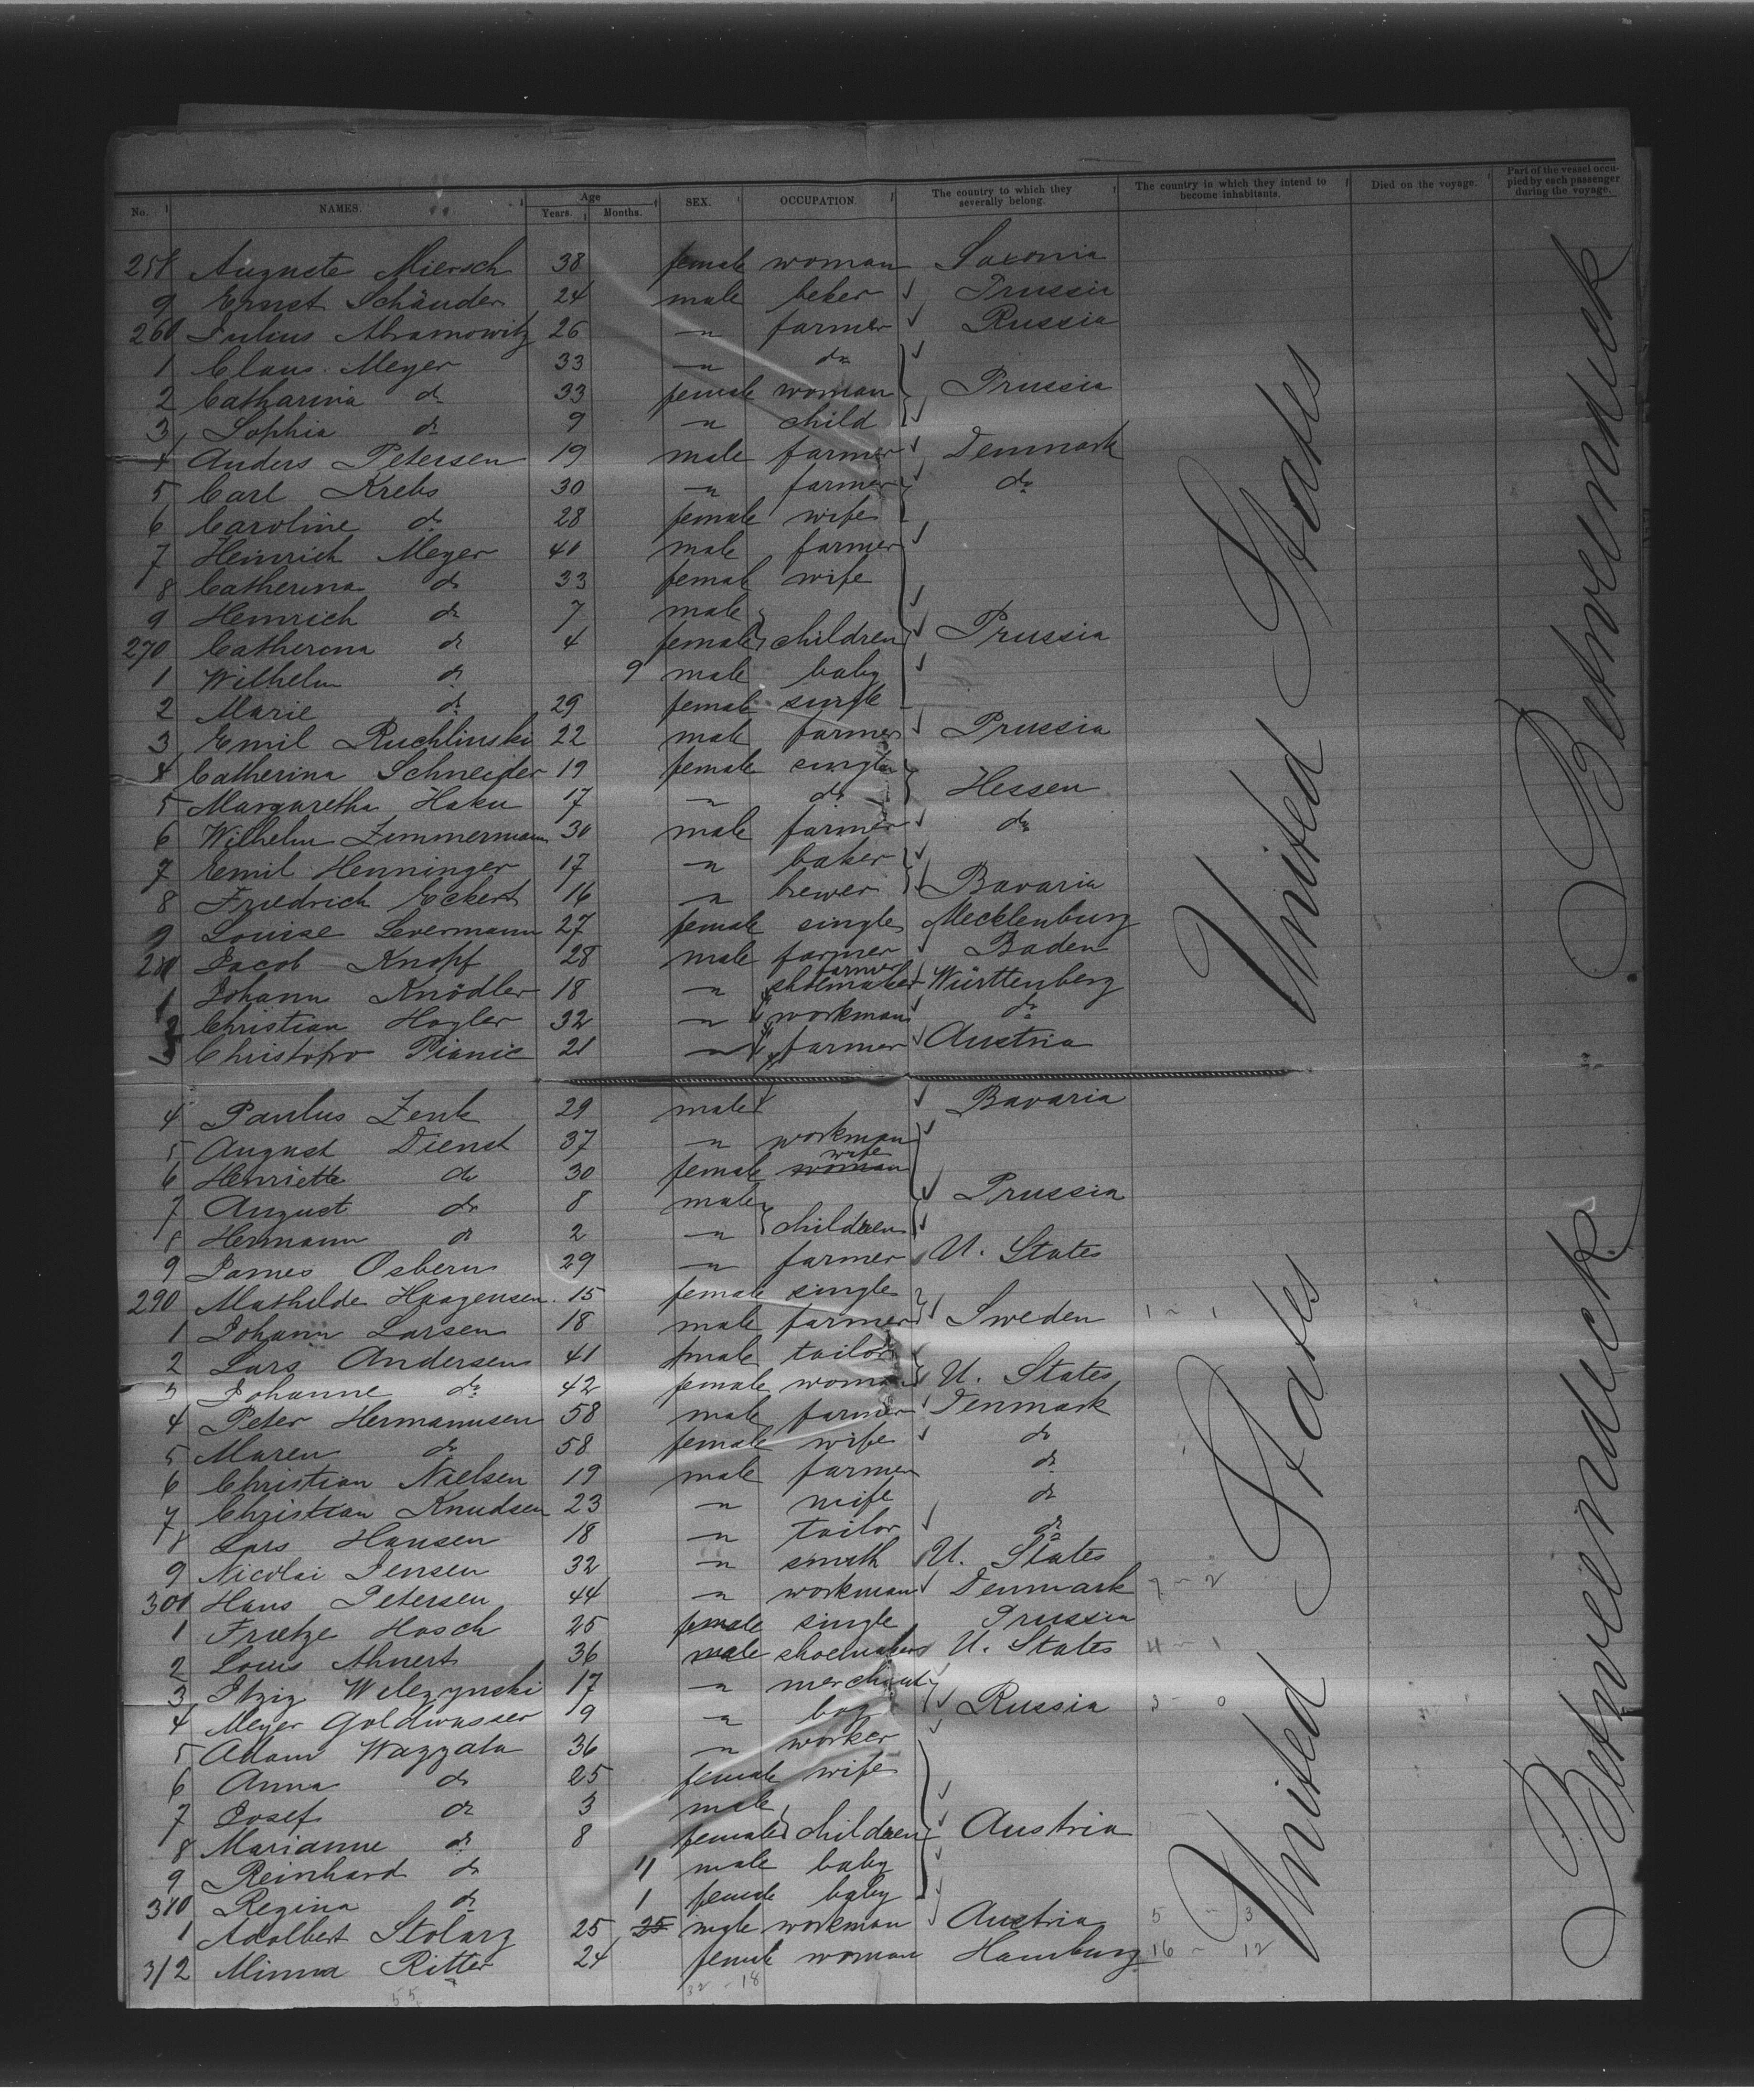 No. NAMES. Age Years. Months. SEX. OCCUPATION. The country to which they severally belong. The country in which they intend to become inhabitants. Died on the voyage. Part of the vessel occupied by each passenger during the voyage.
258 Auguste Miersch 38 female woman Saxonia
9 Ernst Schäuder 24 male beker Prussia
260 Julius Abramowitz 26 " farmer Russia
1 Claus Meyer 33 " do
2 Catharina do 33 female woman Prussia
3 Sophia do 9 " child
4 Anders Petersen 19 male farmer Denmark
5 Carl Krebs 30 " farmer do
6 Caroline do 28 female wife
7 Heinrich Meyer 40 male farmer
8 Catherina do 33 female wife
9 Heinrich do 7 male
270 Catherina do 4 female children Prussia
1 Wilhelm do 9 male baby
2 Marie do 29 female single
3 Emil Ruchlinski 22 male farmer Prussia
4 Catherina Schneider 19 female single
5 Margaretha Haku 17 " do Hessen
6 Wilhelm Zimmermann 30 male farmer do
7 Emil Henninger 17 " baker
8 Friedrich Eckert 16 " brewer Bavaria
9 Louise Levermann 27 female single Mecklenburg
280 Jacob Knopf 28 male farmer Baden
1 Johann Knödler 18 " farmer shoemaker Württenberg
2 Christian Hogler 32 " workman do
3 Christopo Pianic 21 " farmer Austria
4 Paulus Zenk 29 male Bavaria
5 August Dienst 37 " workman
6 Henriette do 30 female woman wife
7 August do 8 male Prussia
8 Hermann do 2 " children
9 James Osbern 29 " farmer U. States
290 Mathilde Haagensen 15 female single
1 Johann Larsen 18 male farmer Sweden 1 - 1
2 Lars Andersen 41 male tailor
3 Johanne do 42 female woman U. States
4 Peter Hermannsen 58 male farmer Denmark
5 Maren do 58 female wife do
6 Christian Nielsen 19 male farmer do
7 Christian Knudsen 23 " wife do
8 Lars Hansen 18 " tailor do
9 Nicolai Jensen 32 " smith U. States
300 Hans Petersen 44 " workman Denmark 7 - 2
1 Frietze Hosch 25 female single Prussia
2 Louis Ahnert 36 male shoemaker U. States 4 - 1
3 Itzig Welezynski 17 " merchant
4 Meyer Goldwasser 19 " boy Russia 3 - 0
5 Adam Wazzala 36 " worker
6 Anna do 25 female wife
7 Josef do 3 male
8 Marianne do 8 female children Austria
9 Reinhard do 11 male baby
310 Regina do 1 female baby
1 Adalbert Stolarz 25 25 male workman Austria 5 - 3
312 Minna Ritter 24 female woman Hamburg 16 - 12
55 32 - 18
United States
Betweendeck
United States
Betweendeck